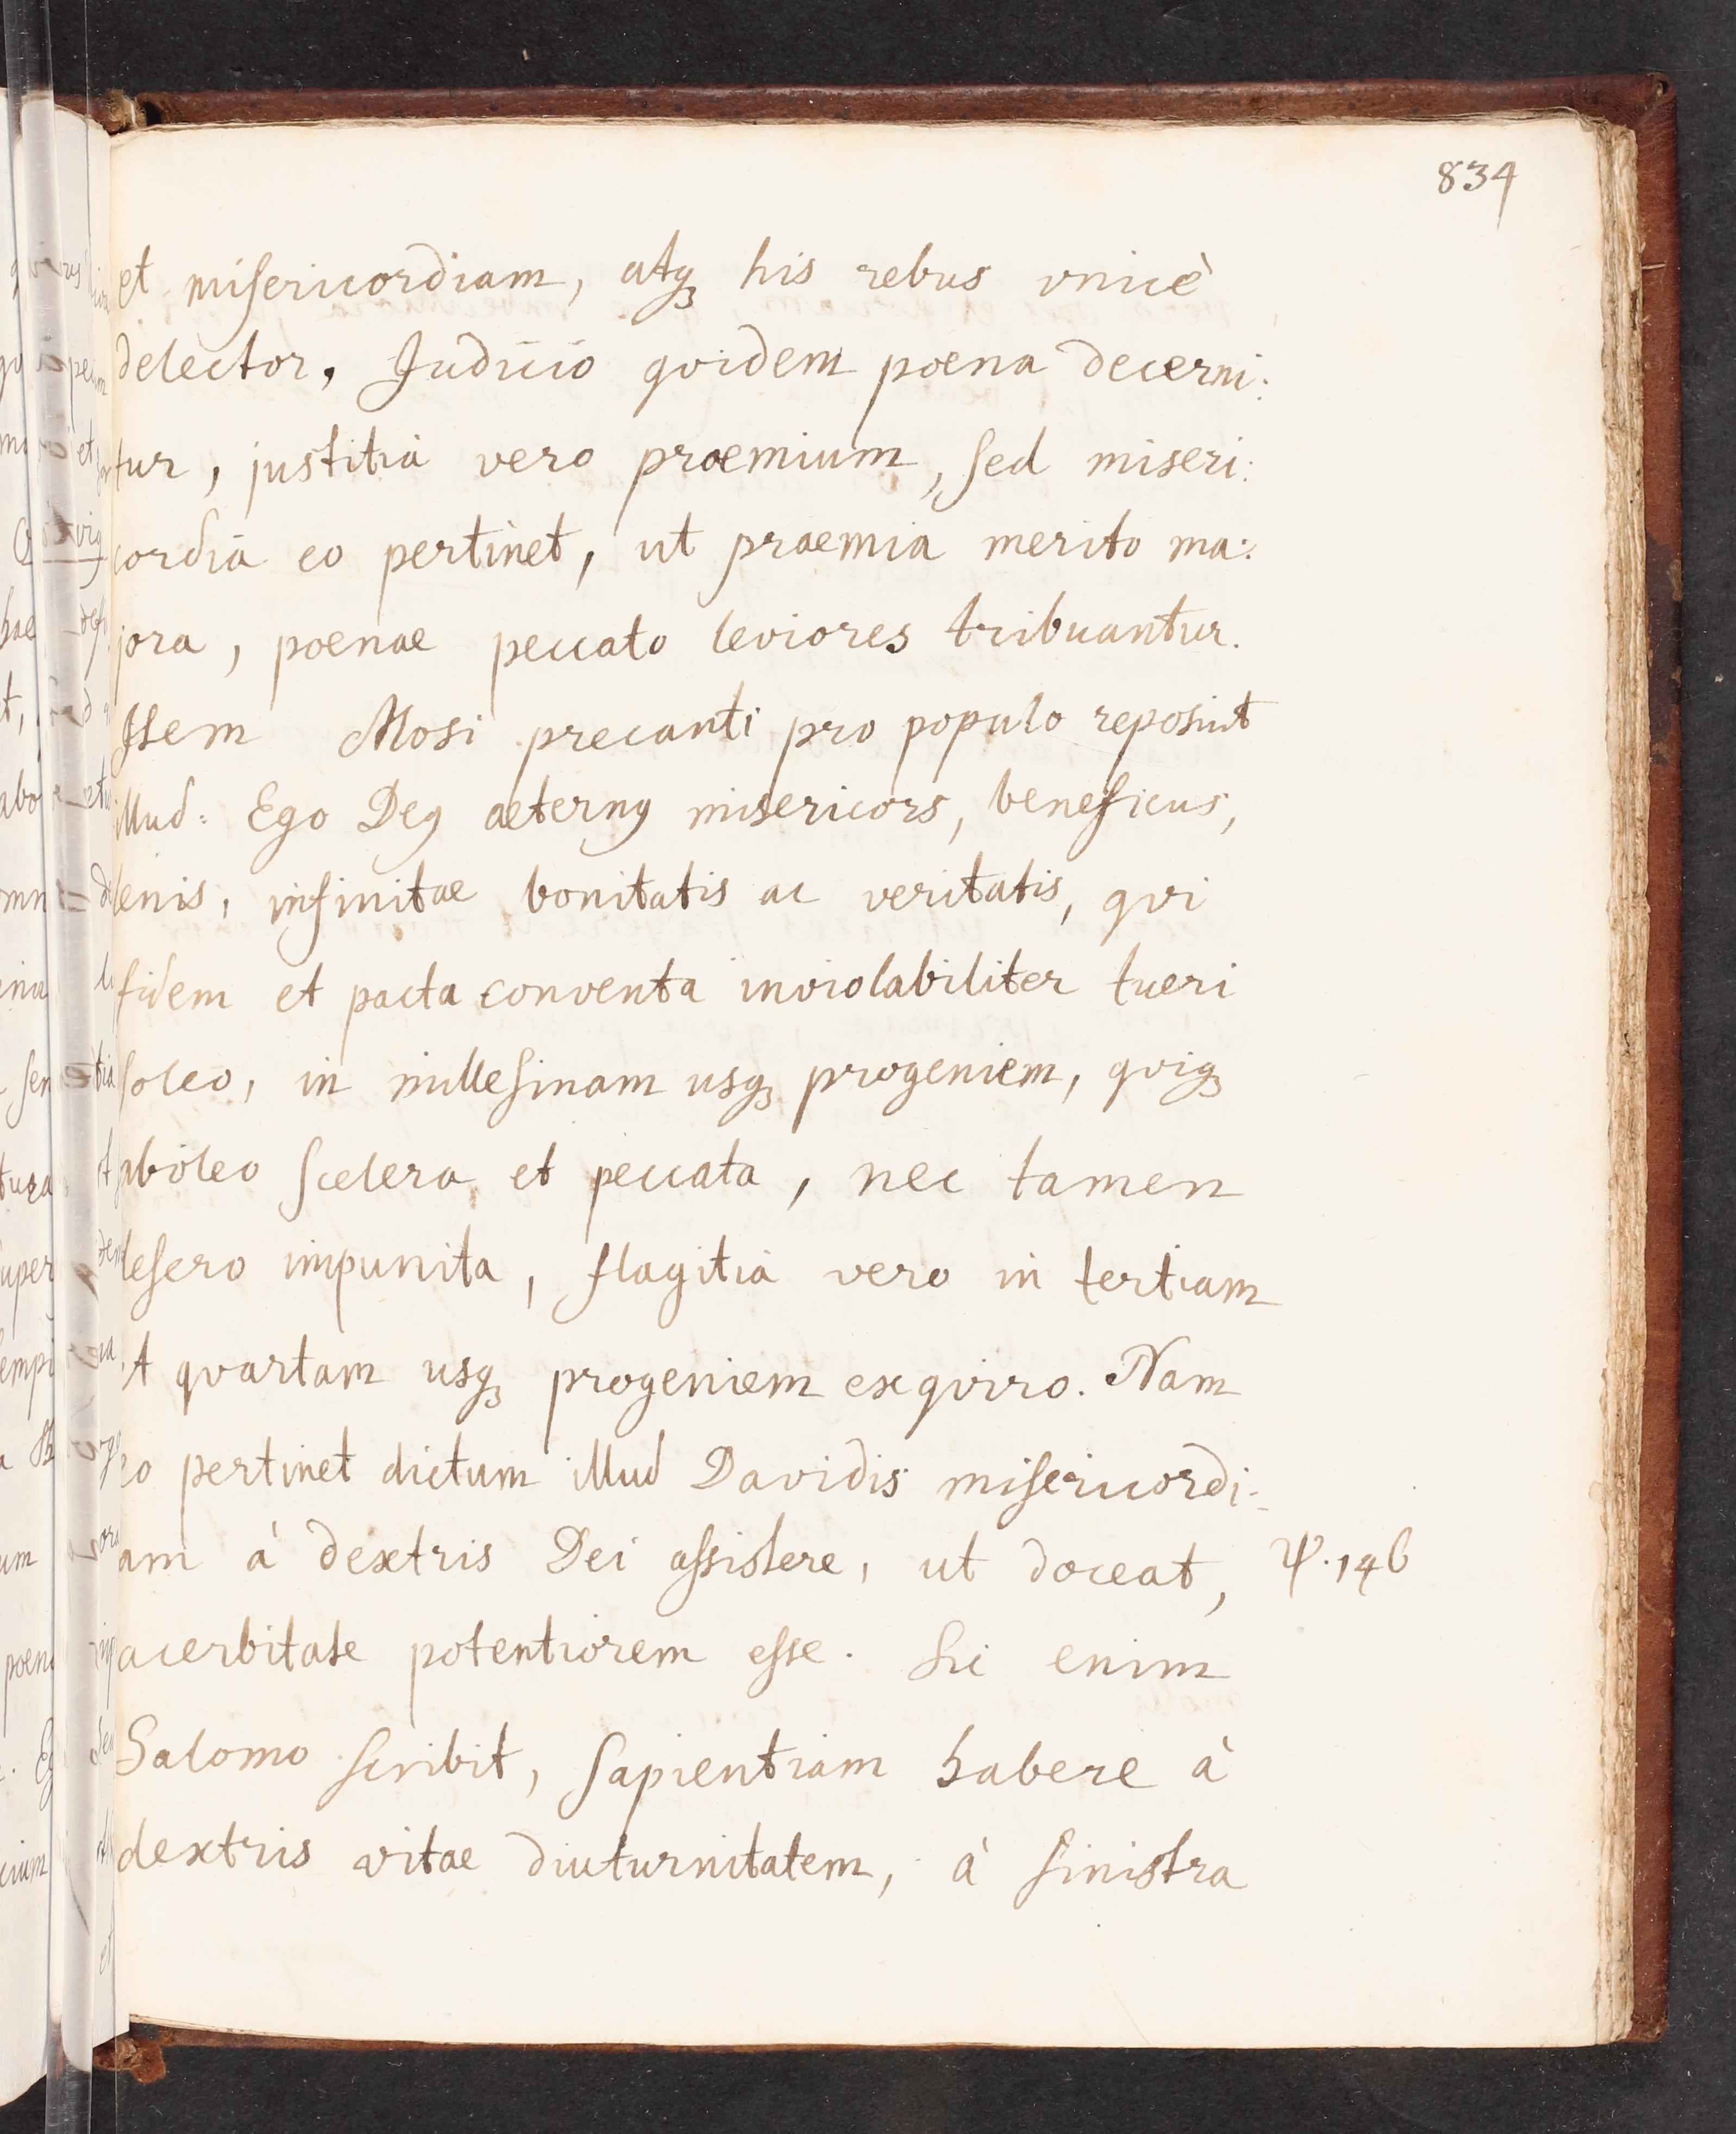 834
et misericordiam, atq₃ his rebus vnicè
delector, Judicio qvidem poena decerni:
tur, justitiâ vero praemium, sed miseri:
cordiâ eo pertinet, ut praemia merito ma:
jora, poenae peccato leviores tribuantur.
Item Mosi precanti pro populo reposuit
illud: Ego Deꝰ aeternꝰ misericors, beneficus,
lenis, infinitae bonitatis ac veritatis, qvi
fidem et pacta conventa inviolabiliter tueri
soleo, in millesimam usq₃ progeniem, qviq₃
aboleo scelera et peccata, nec tamen
desero impunita, flagitia vero in tertiam
et qvartam usq₃ progeniem exqviro. Nam
eo pertinet dictum illud Davidis misericordi:
am à dextris Dei assistere, ut doceat, Ψ. 146
acerbitate potentiorem esse. Sic enim
Salomo scribit, sapientiam habere à
dextris vitae diuturnitatem, à sinistra